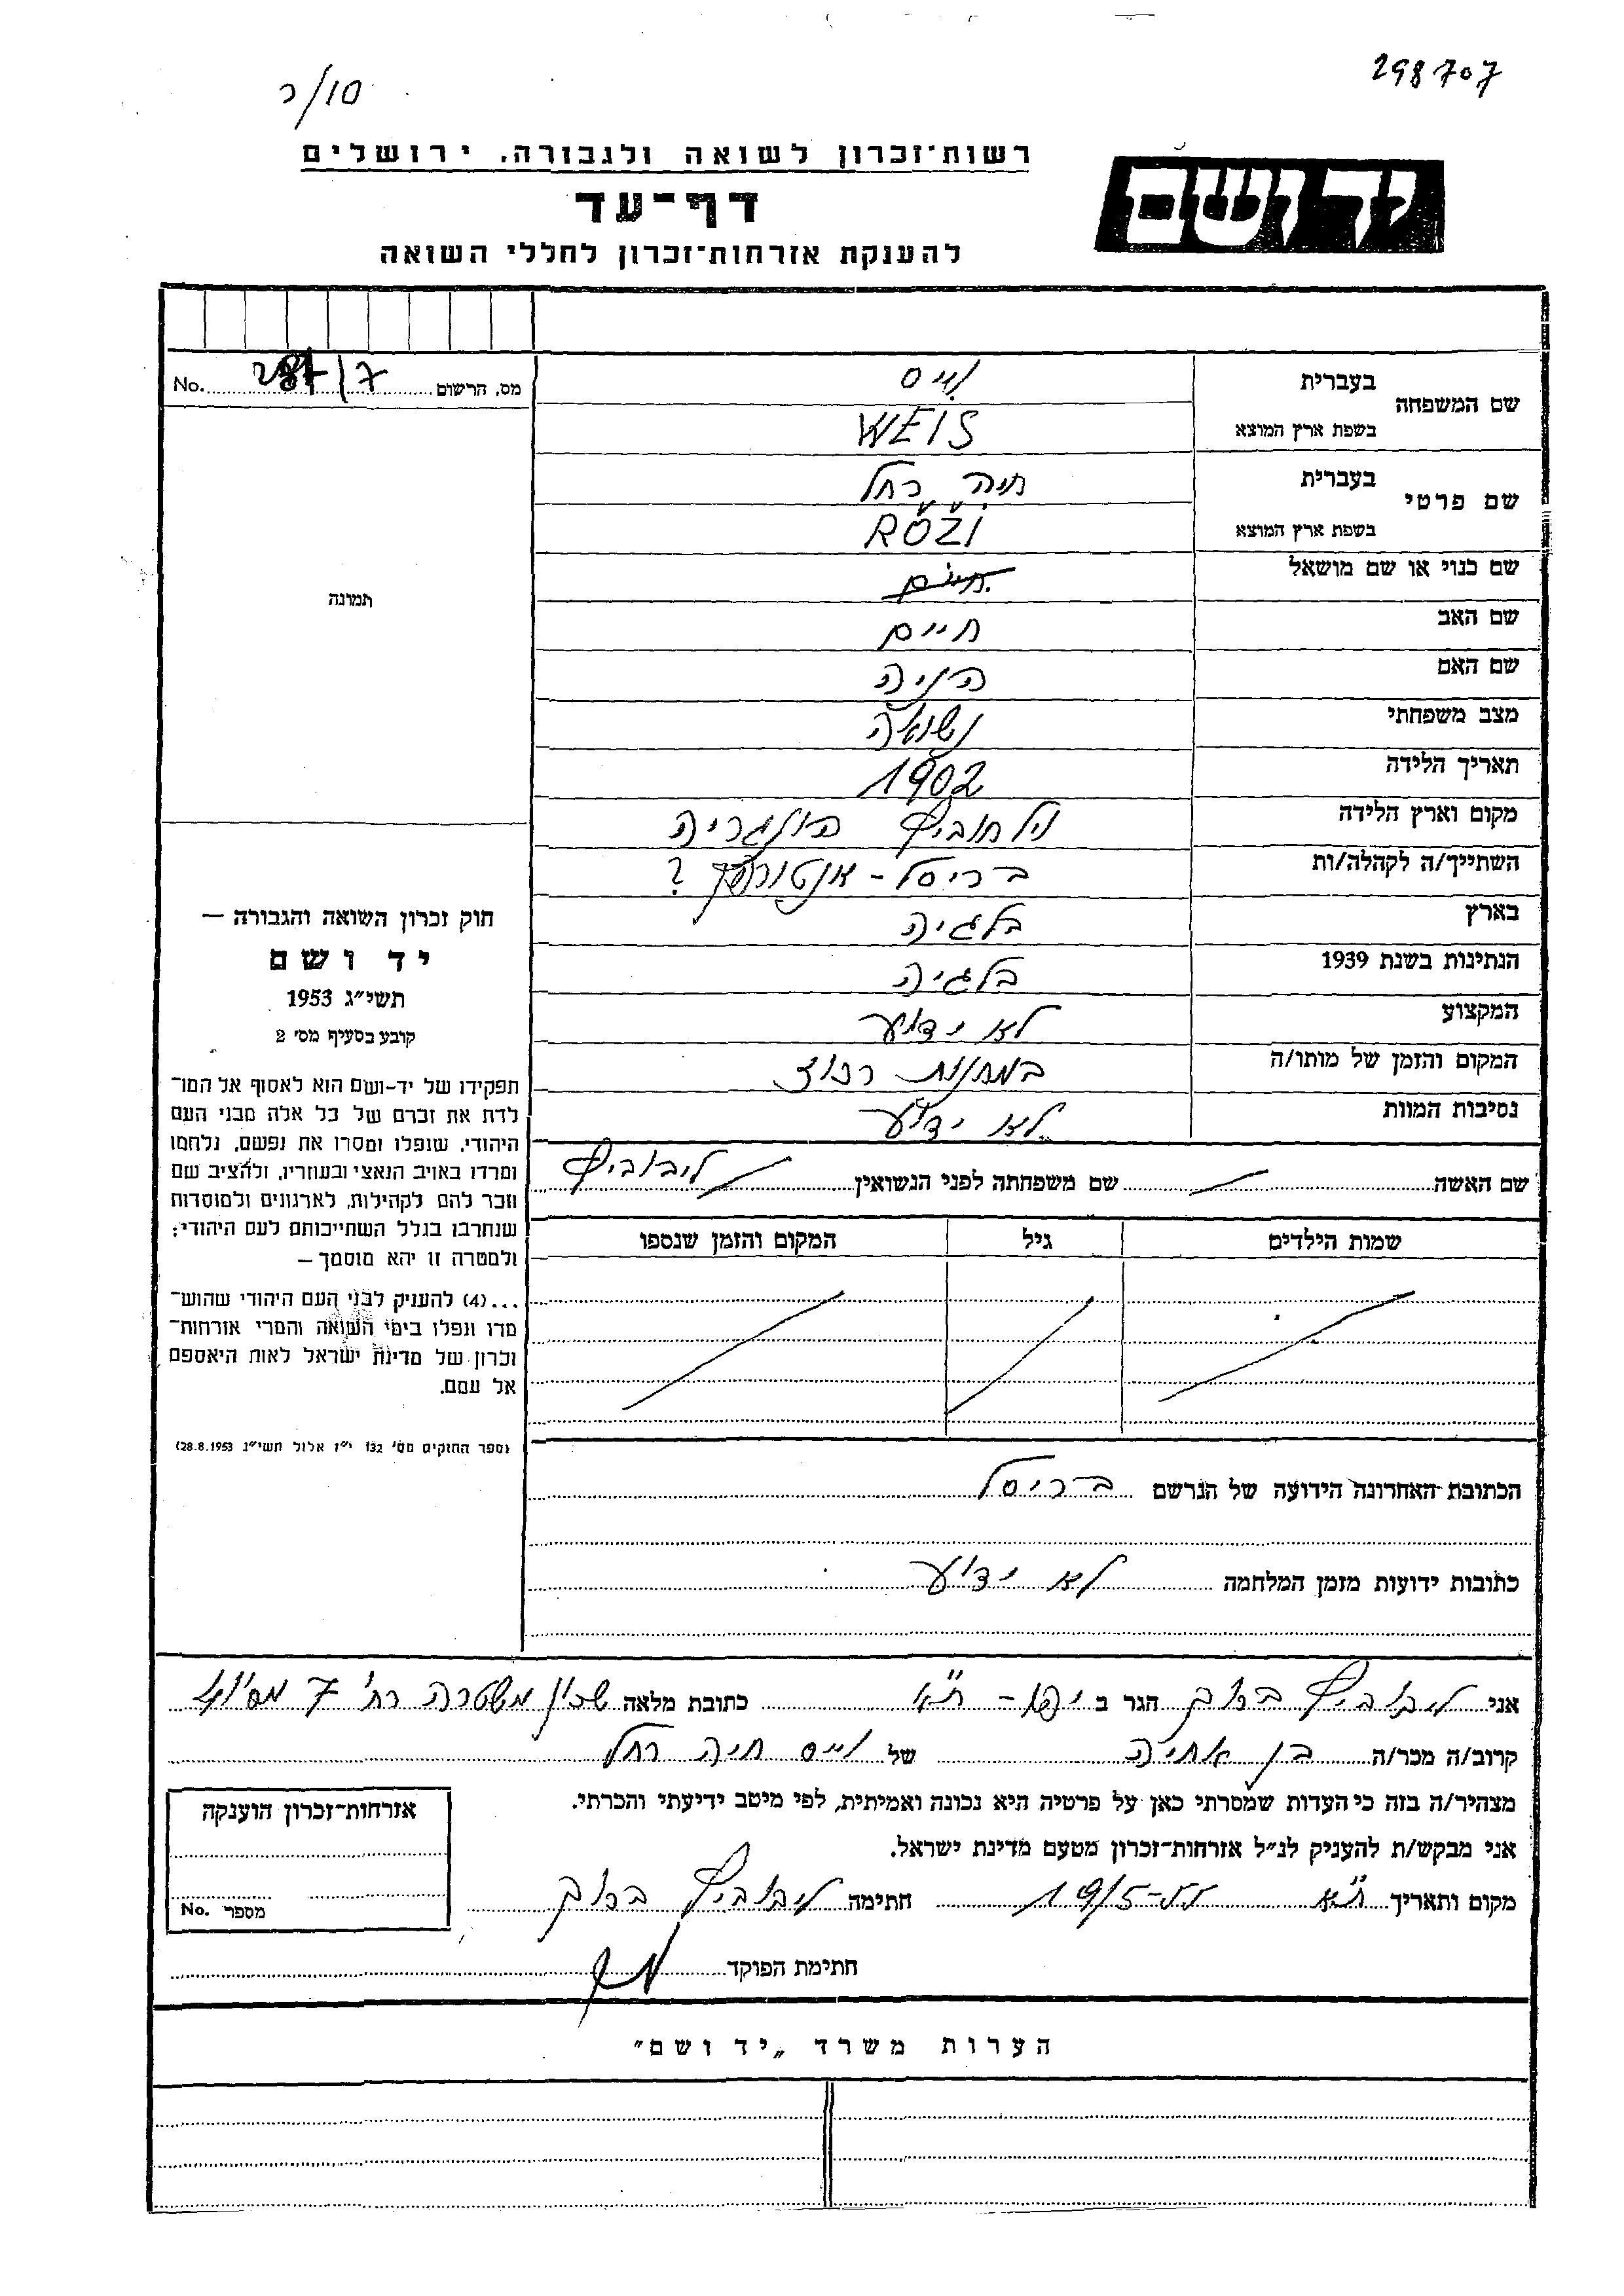 298707
ר/10
יד ושם
רשות־זכרון לשואה ולגבורה, ירושלים
דף־עד
להענקת אזרחות־זכרון לחללי השואה
מס. הרשום No.
שם המשפחה
בעברית
וייס
בשפת ארץ המוצא
WEIS
שם פרטי
בעברית
חיה רחל
בשפת ארץ המוצא
RÖZI
שם כנוי או שם מושאל
שם האב חיים
שם האם
מצב משפחתי נשואה
תאריך הלידה 1902
מקום וארץ הלידה הונגריה
השתייך/ה לקהלה/ות בריסל - אנטורפן ?
בארץ בלגיה
הנתינות בשנת 1939 בלגיה
המקצוע לא ידוע
המקום והזמן של מותו/ה במחנות רכוז
נסיבות המוות לא ידוע
שם האשה שם משפחתה לפני הנשואין ליבוביץ
שמות הילדים גיל המקום והזמן שנספו
הכתובת האחרונה הידועה של הנרשם בריסל
כתובות ידועות מזמן המלחמה לא ידוע
תמונה
חוק זכרון השואה והגבורה —
יד ושם
תשי״ג 1953
קובע בסעיף מס׳ 2
תפקידו של יד-ושם הוא לאסוף אל המו־
לדת את זכרם של כל אלה מבני העם
היהודי, שנפלו ומסרו את נפשם, נלחמו
ומרדו באויב הנאצי ובעוזריו, ולהציב שם
וזכר להם לקהילות, לארגונים ולמוסדות
שנחרבו בגלל השתייכותם לעם היהודי;
ולמטרה זו יהא מוסמך —
...(4) להעניק לבני העם היהודי שהוש־
מדו ונפלו בימי השואה והמרי אזרחות־
זכרון של מדינת ישראל לאות היאספם
אל עמם.
(ספר החוקים מס׳ 132 י״ז אלול תשי״ג 28.8.1953)
אני ליבוביץ ברוך הגר ב יפו - ת״א כתובת מלאה שכון משטרה רח׳ 7 מס׳
קרוב/ה מכר/ה בן אחיה של וייס חיה רחל
מצהיר/ה בזה כי העדות שמסרתי כאן על פרטיה היא נכונה ואמיתית, לפי מיטב ידיעתי והכרתי.
אני מבקש/ת להעניק לנ״ל אזרחות־זכרון מטעם מדינת ישראל.
מקום ותאריך ת״א חתימה ליבוביץ ברוך
חתימת הפוקד
אזרחות־זכרון הוענקה
מספר No.
הערות משרד „יד ושם״